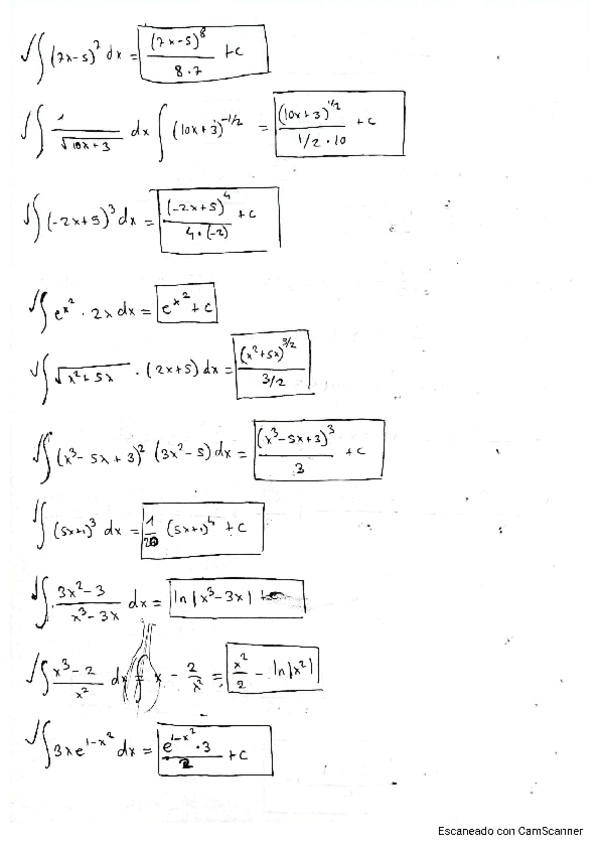 √ ∫ (7x-5)^7 dx = (7x-5)^8 / 8·7 + c
√ ∫ 1/√(10x+3) dx ∫ (10x+3)^(-1/2) = (10x+3)^(1/2) / 1/2·10 + c
√ ∫ (-2x+5)^3 dx = (-2x+5)^4 / 4·(-2) + c
√ ∫ e^(x^2) · 2x dx = e^(x^2) + c
√ ∫ √(x^2+5x) · (2x+5) dx = (x^2+5x)^(3/2) / 3/2
√ ∫ (x^3-5x+3)^2 (3x^2-5) dx = (x^3-5x+3)^3 / 3 + c
√ ∫ (5x+1)^3 dx = 1/20 (5x+1)^4 + c
√ ∫ 3x^2-3 / x^3-3x dx = ln|x^3-3x|
√ ∫ x^3-2 / x^2 dx = x - 2/x^2 = x^2/2 - ln|x^2|
√ ∫ 3xe^(1-x^2) dx = e^(1-x^2)·3 / 2 + c
Escaneado con CamScanner